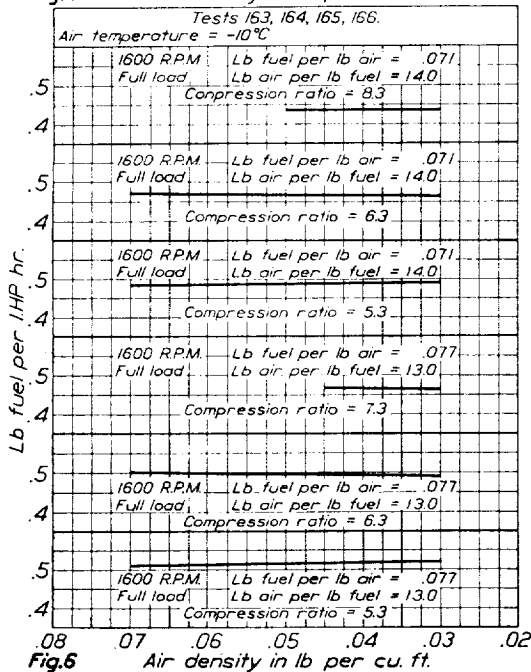 Tests 163, 164, 165, 166.
Air temperature = -10°C
1600 R.P.M. Lb fuel per lb air = .071
Full load Lb air per lb fuel = 14.0
Conpression ratio = 8.3
.5
.4
1600 R.P.M. Lb fuel per lb air = .071
Full load Lb air per lb fuel = 14.0
.5
Compression ratio = 6.3
.4
1600 R.P.M. Lb fuel per lb air = .071
Full load Lb air per lb fuel = 14.0
.5
Compression ratio = 5.3
.4
1600 R.P.M. Lb fuel per lb air = .077
Full load Lb air per lb fuel = 13.0
.5
Compression ratio = 7.3
.4
.5
1600 R.P.M. Lb fuel per lb air = .077
Full load Lb air per lb fuel = 13.0
.4
Compression ratio = 6.3
.5
1600 R.P.M. Lb fuel per lb air = .077
Full load Lb air per lb fuel = 13.0
.4
Compression ratio = 5.3
Lb fuel per I.HP hr.
.08 .07 .06 .05 .04 .03 .02
Fig.6 Air density in lb per cu. ft.